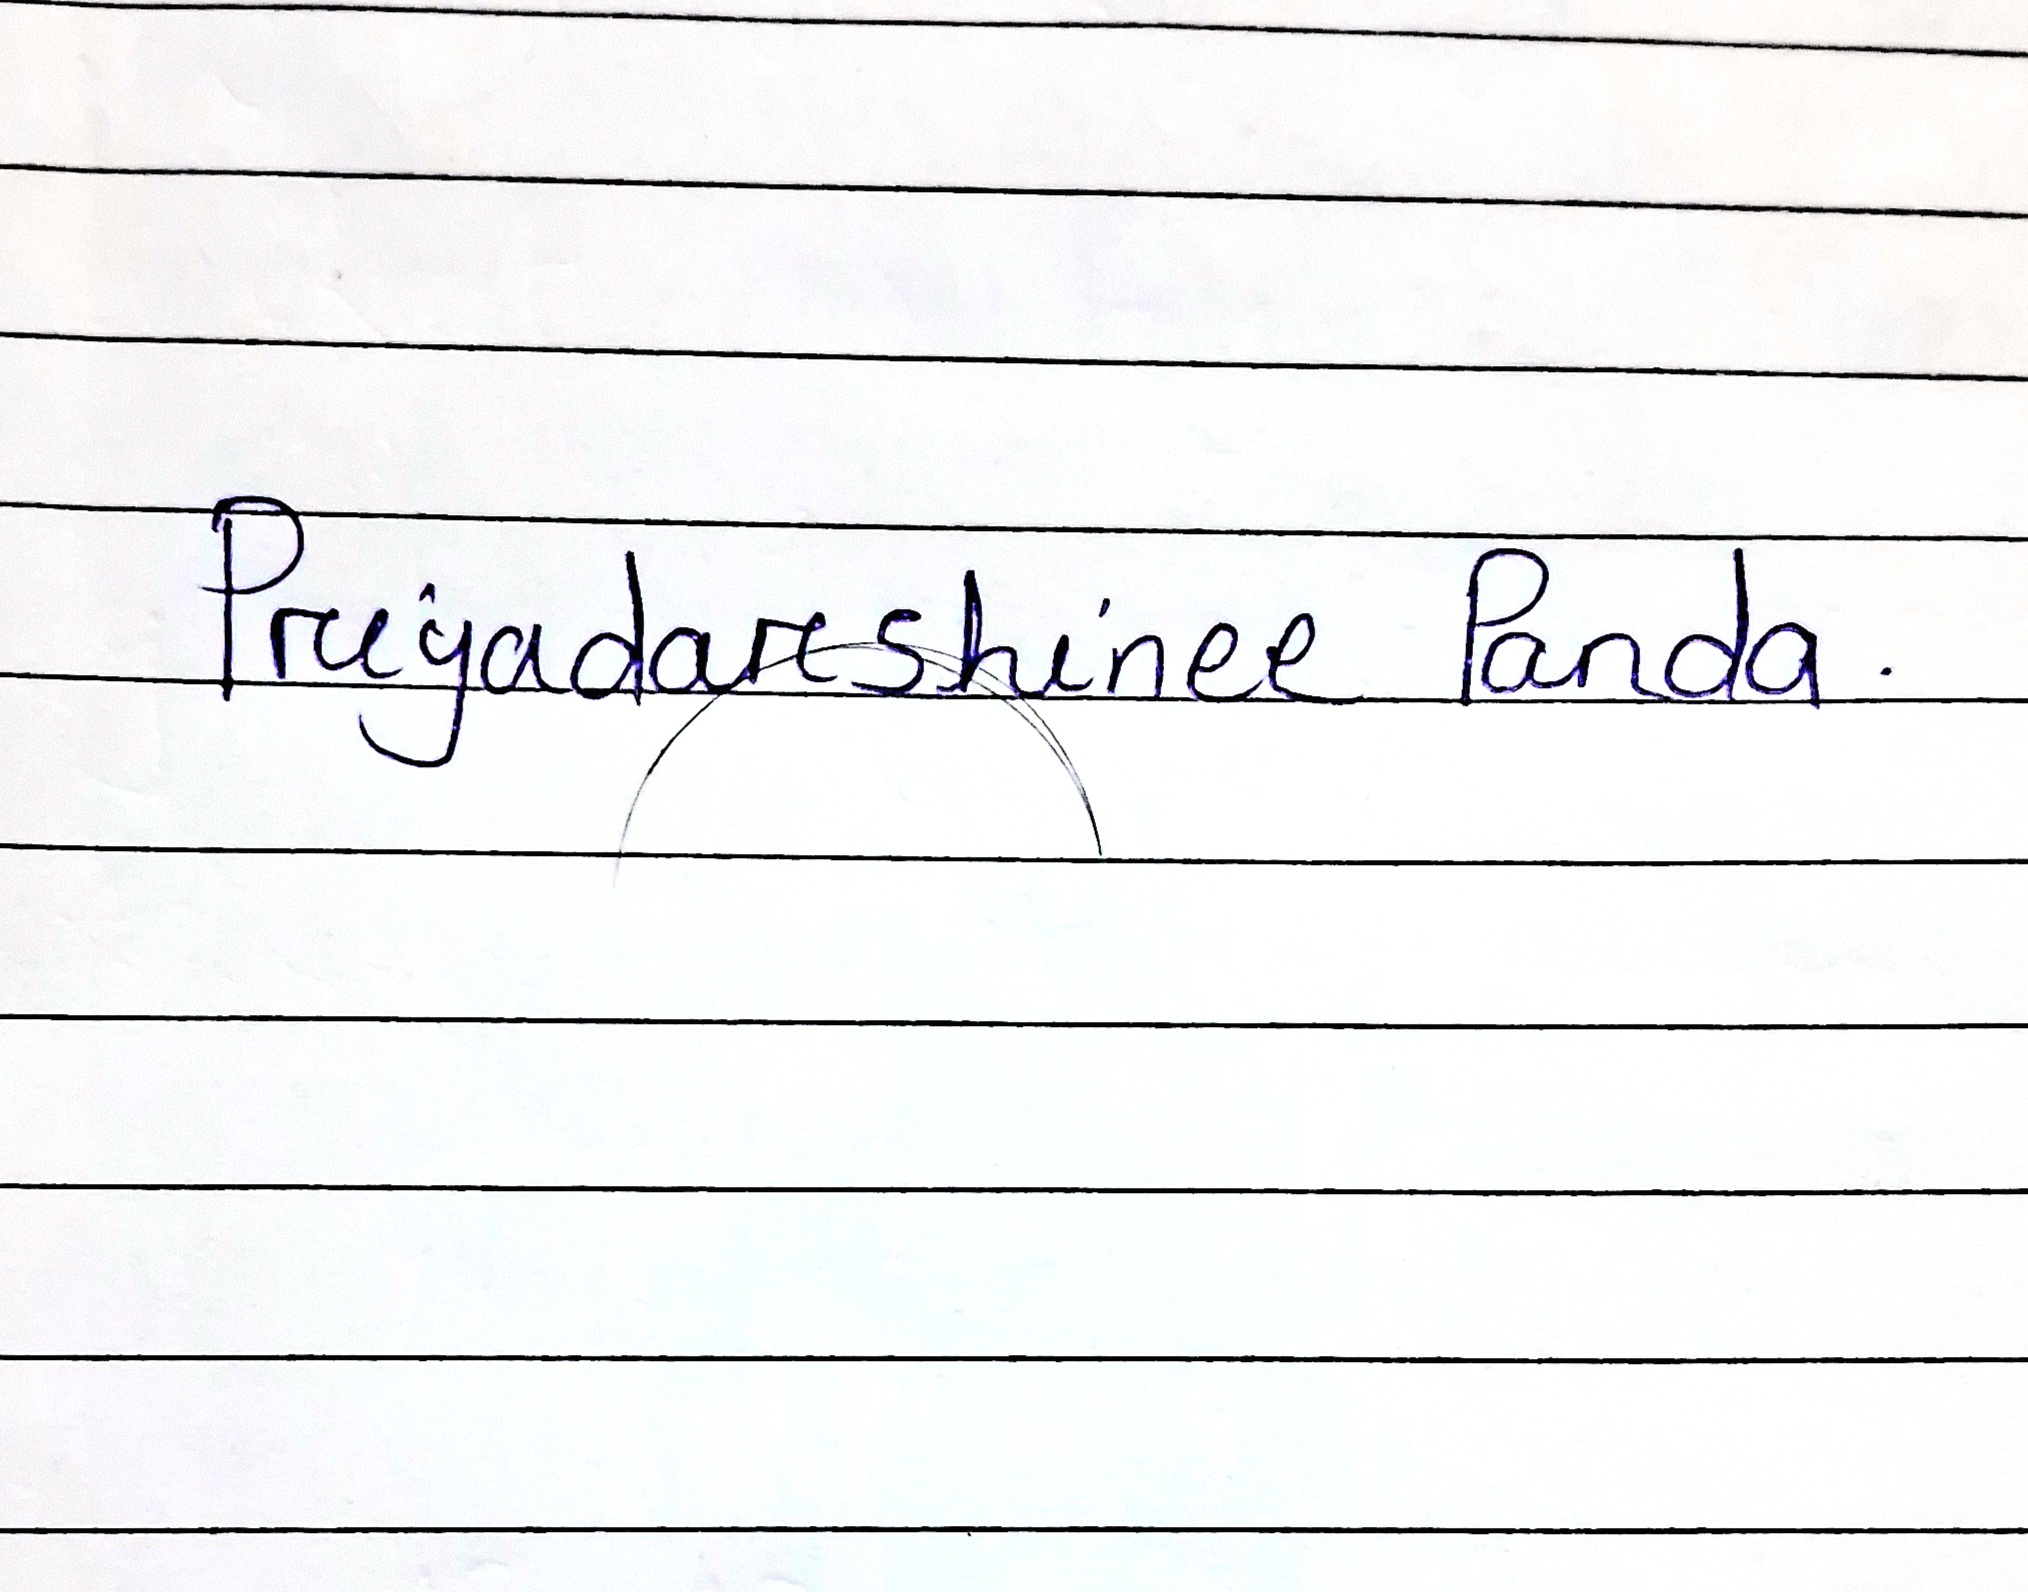 Priyadarshinee Panda.